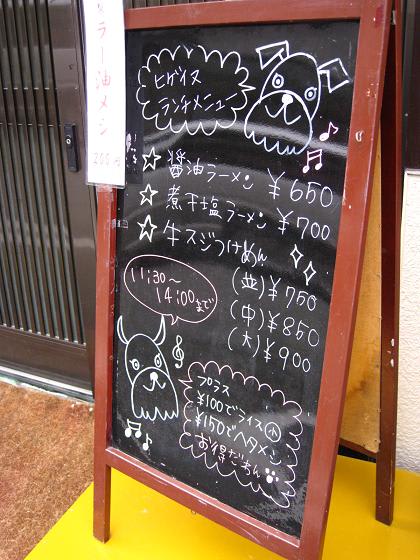 ラー油メシ
ヒゲイヌ
ランチメニュー
☆醤油ラーメン ¥650
☆煮干塩ラーメン ¥700
☆牛スジつけめん
(並)¥750
(中)¥850
(大)¥900
11:30〜
14:00まで
プラス
¥100でライス小
¥150でヘタメシ
お得だもん